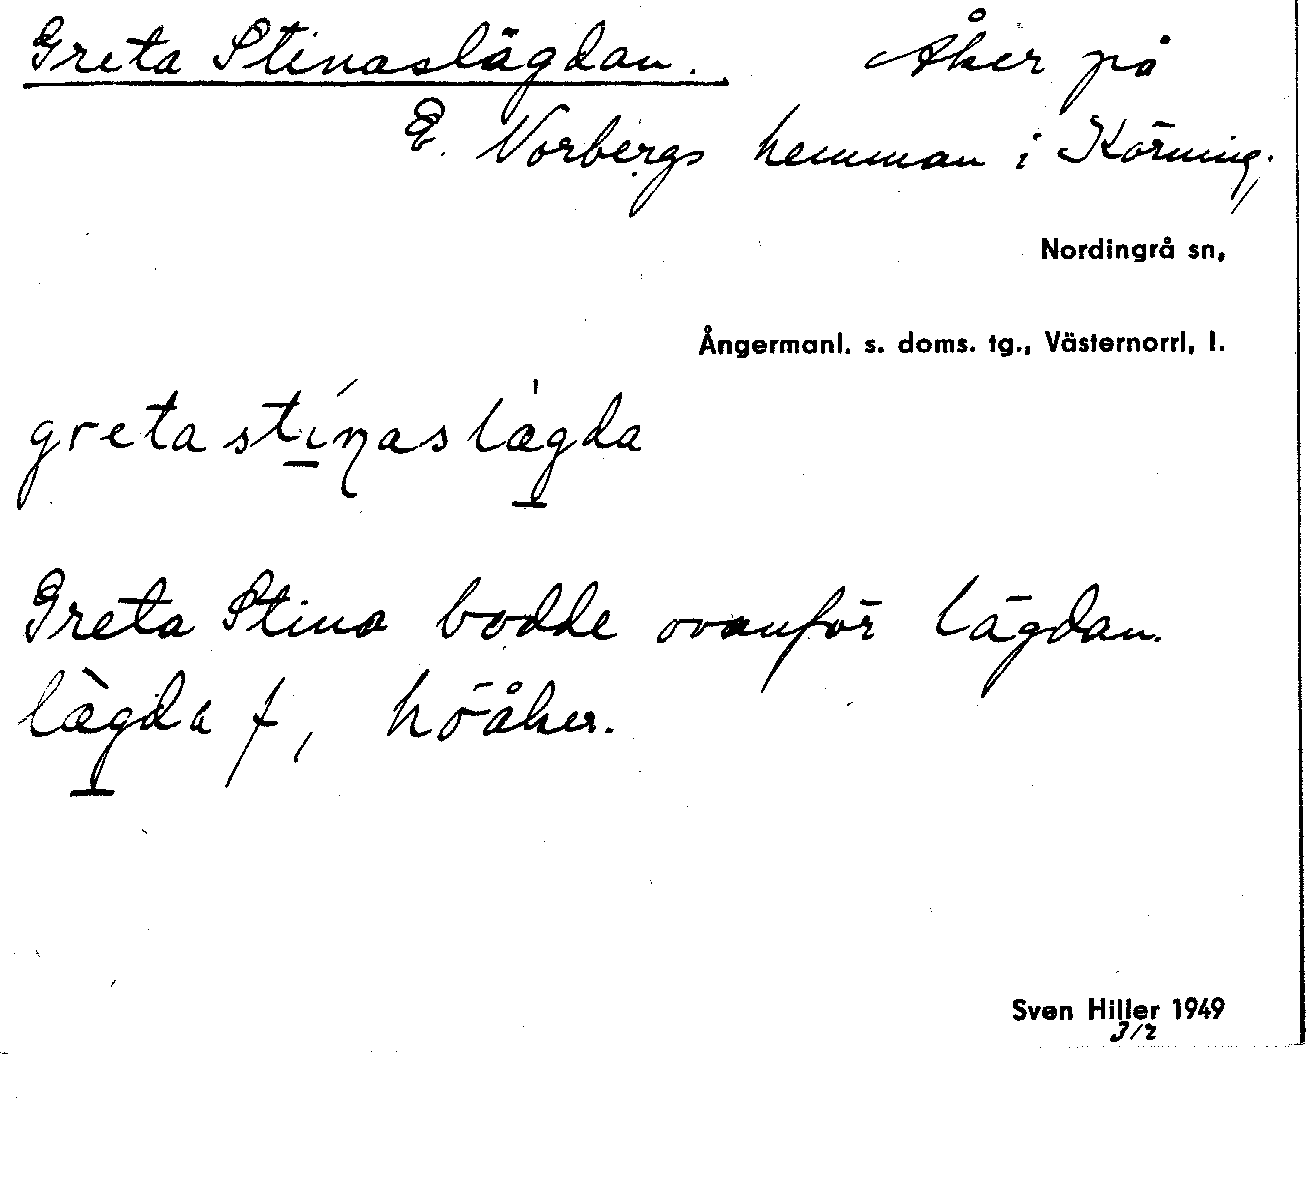 Greta Stinaslägdan. Åker på
E. Norbergs hemman i Körning,
Nordingrå sn,
Ångermanl. s. doms. tg., Västernorrl, l.
greta stínas lægda
Greta Stina bodde ovanför lägdan.
lægda f, höåker.
Sven Hiller 1949
3/2